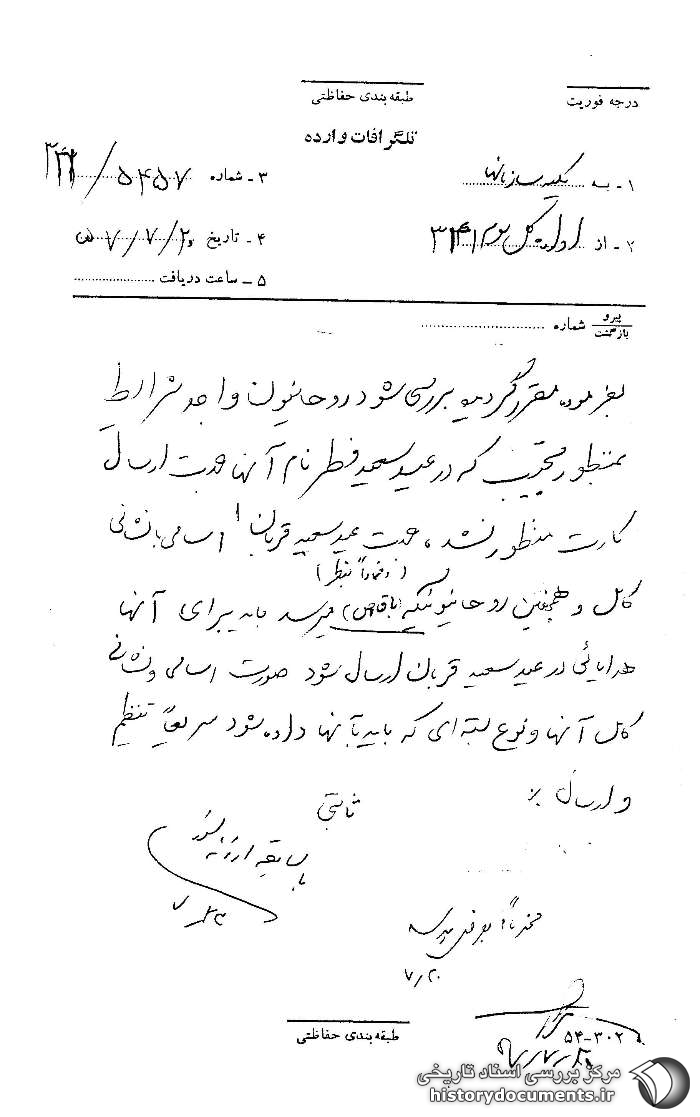 درجه فوریت
طبقه بندی حفاظتی
تلگرافات وارده
۱ - به کلیه سازمانها
۳ - شماره ۵۴۵۷ / ۳۴۱
۲ - از اداره کل سوم ۳۴۱
۴ - تاریخ ۲۰ / ۷ /
۵ - ساعت دریافت
پیرو
بازگشت شماره
بفرموده مقرر گردیده بررسی شود روحانیون واجد شرایط
بمنظور تحبیب که در عید سعید فطر نام آنها جهت ارسال
کارت منظور نشد، جهت عید سعید قربان اسامی با نشانی
کامل و همچنین روحانیونیکه میرسد باید برای آنها
هدایائی در عید سعید قربان ارسال شود صورت اسامی و نشانی
کامل آنها و نوع بسته ای که باید بآنها داده شود سریعاً تنظیم
و ارسال ٪
ثابتی
با سابقه ارائه شود
محترماً بعرض میرسد
۷/۲۰
طبقه بندی حفاظتی
۵۴-۳۰۲
مرکز بررسی اسناد تاریخی
historydocuments.ir